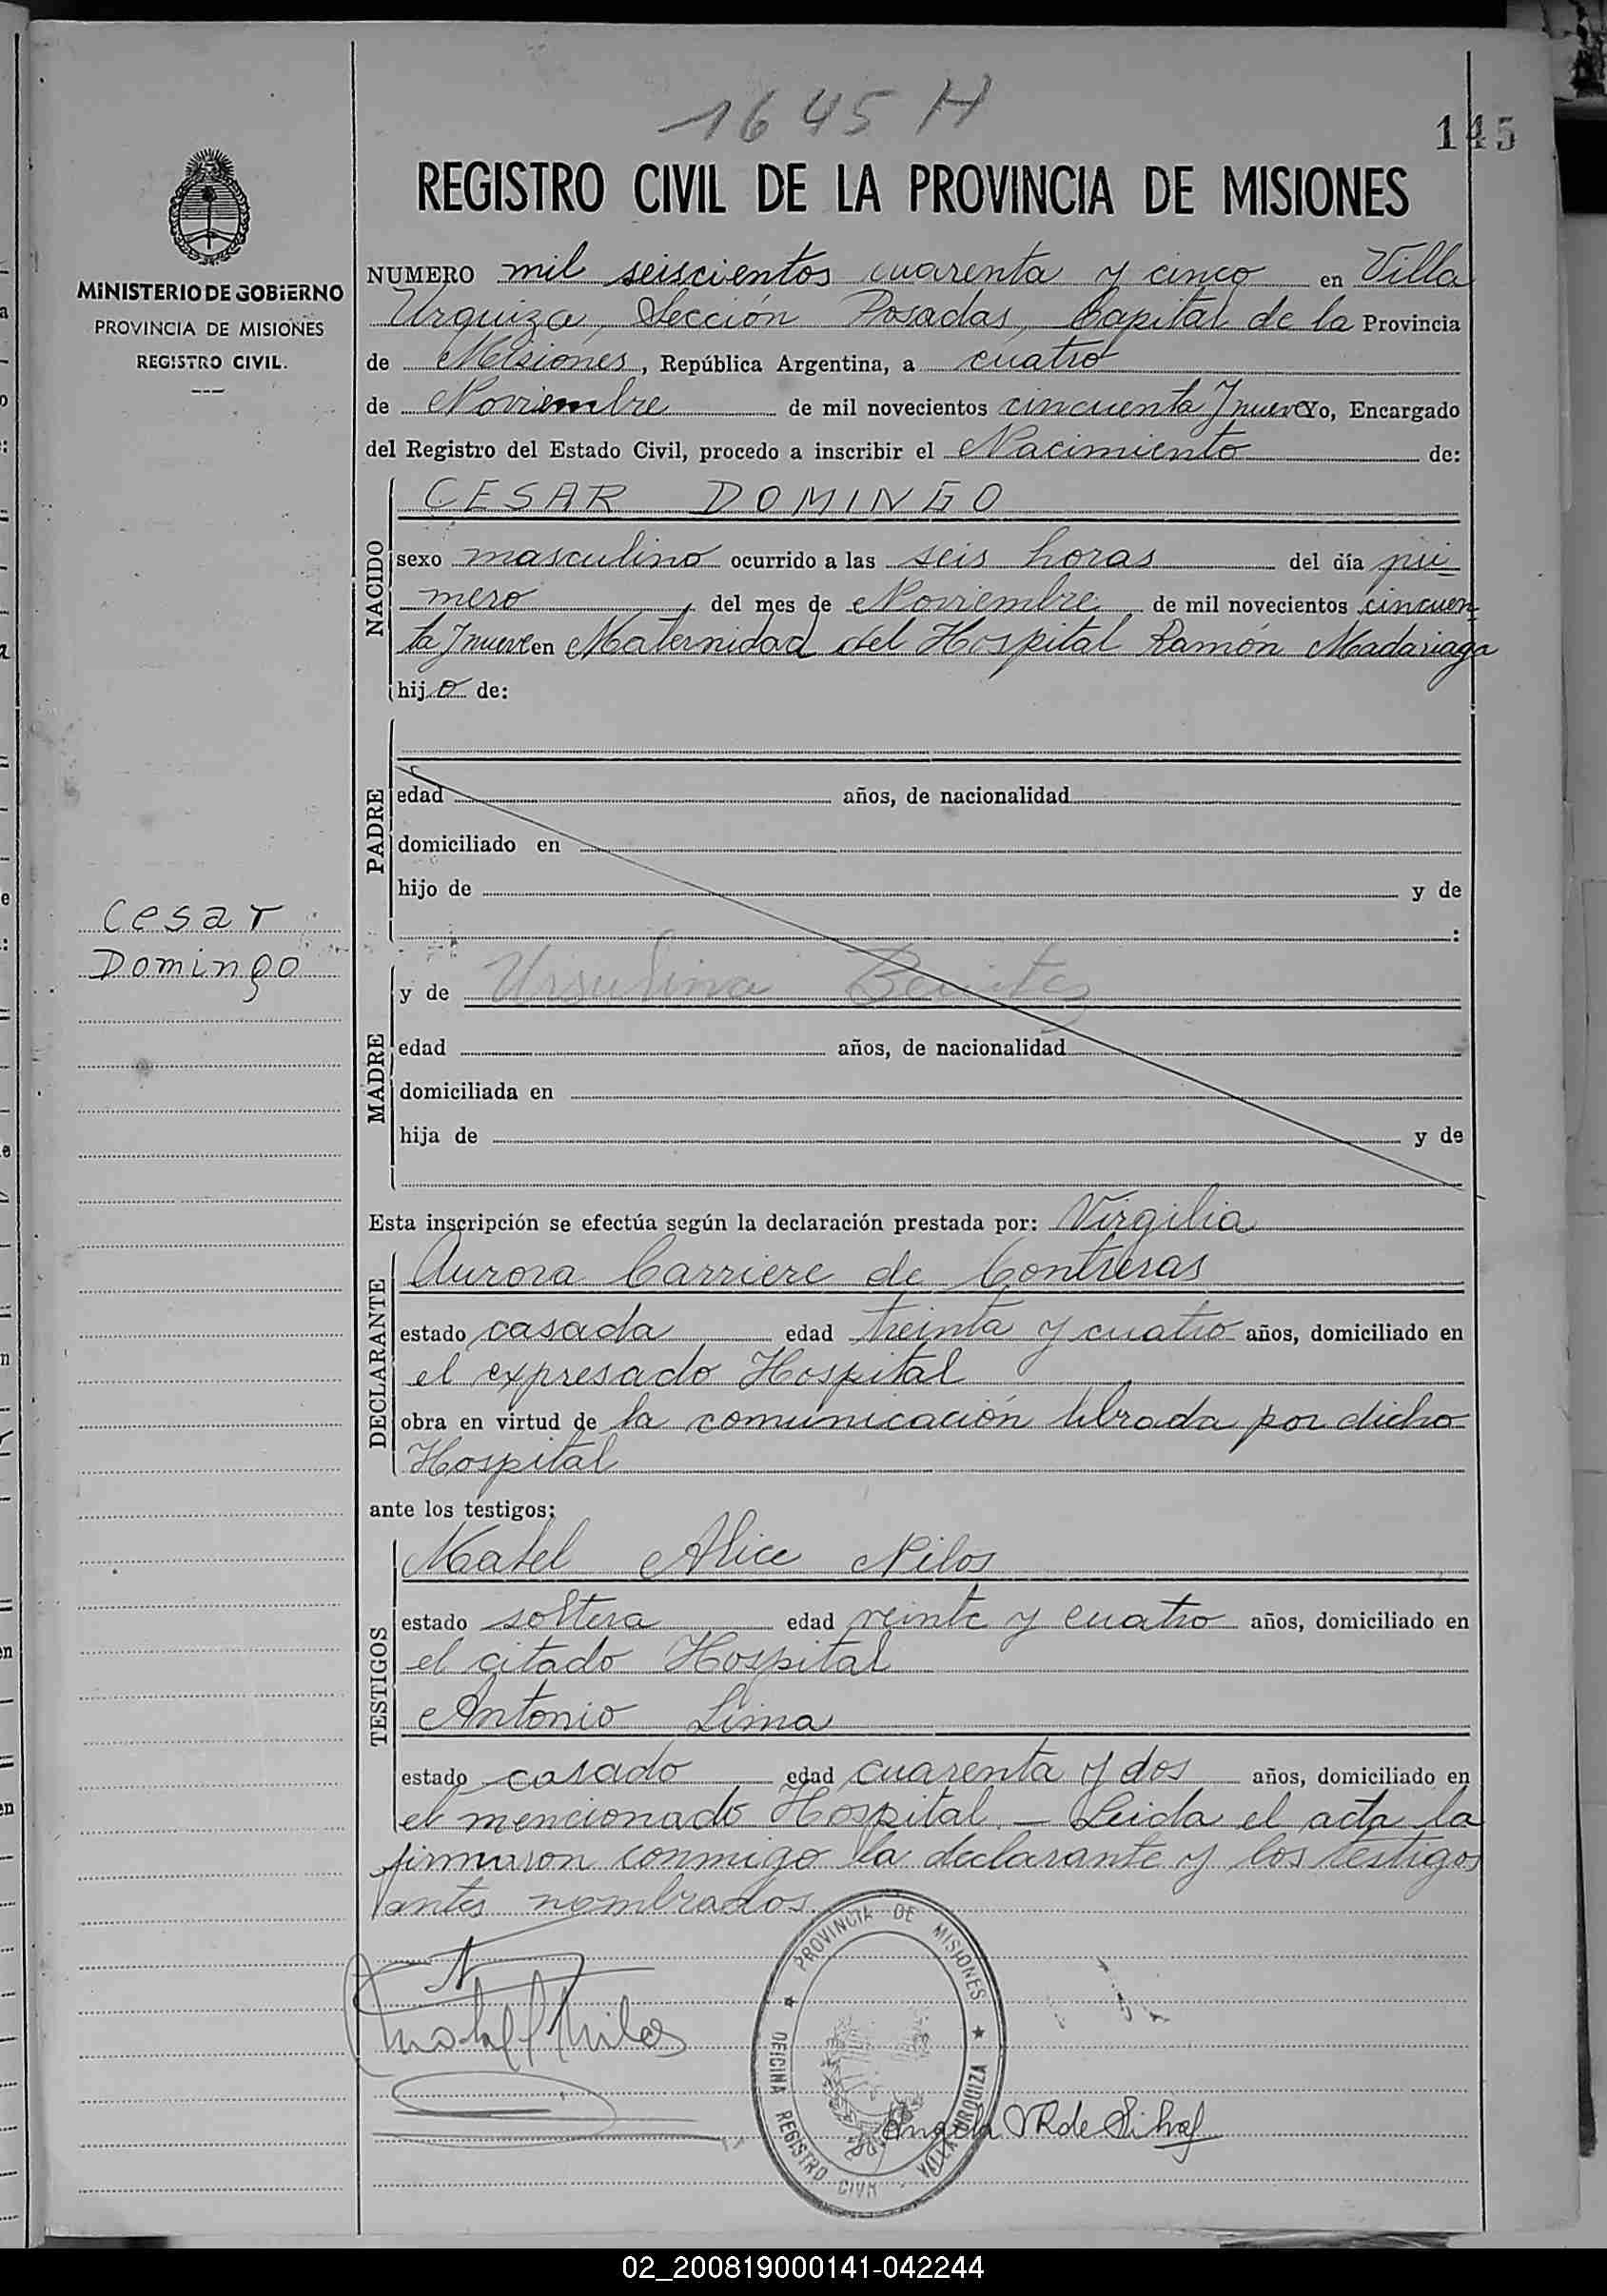 1645 H
145
MINISTERIO DE GOBIERNO
PROVINCIA DE MISIONES
REGISTRO CIVIL.
REGISTRO CIVIL DE LA PROVINCIA DE MISIONES
NUMERO mil seiscientos cuarenta y cinco en Villa
Urquiza, Sección Posadas, Capital de la Provincia
de Misiones, República Argentina, a cuatro
de Noviembre de mil novecientos cincuenta y nueve Yo, Encargado
del Registro del Estado Civil, procedo a inscribir el Nacimiento de:
NACIDO
CESAR DOMINGO
sexo masculino ocurrido a las seis horas del día pri-
mero del mes de Noviembre de mil novecientos cincuen-
ta y nueve en Maternidad del Hospital Ramón Madariaga
hijo de:
PADRE
edad años, de nacionalidad
domiciliado en
hijo de y de
:
Cesar
Domingo
MADRE
y de Ursulina Benitez
edad años, de nacionalidad
domiciliada en
hija de y de
Esta inscripción se efectúa según la declaración prestada por: Virgilia
DECLARANTE
Aurora Carriere de Contreras
estado casada edad treinta y cuatro años, domiciliado en
el expresado Hospital
obra en virtud de la comunicación librada por dicho
Hospital
ante los testigos:
TESTIGOS
Mabel Alice Nilos
estado soltera edad veinte y cuatro años, domiciliado en
el citado Hospital
Antonio Lima
estado casado edad cuarenta y dos años, domiciliado en
el mencionado Hospital. — Leida el acta la
firmaron conmigo la declarante y los testigos
antes nombrados.
PROVINCIA DE MISIONES
OFICINA REGISTRO CIVIL VILLA URQUIZA
02_200819000141-042244